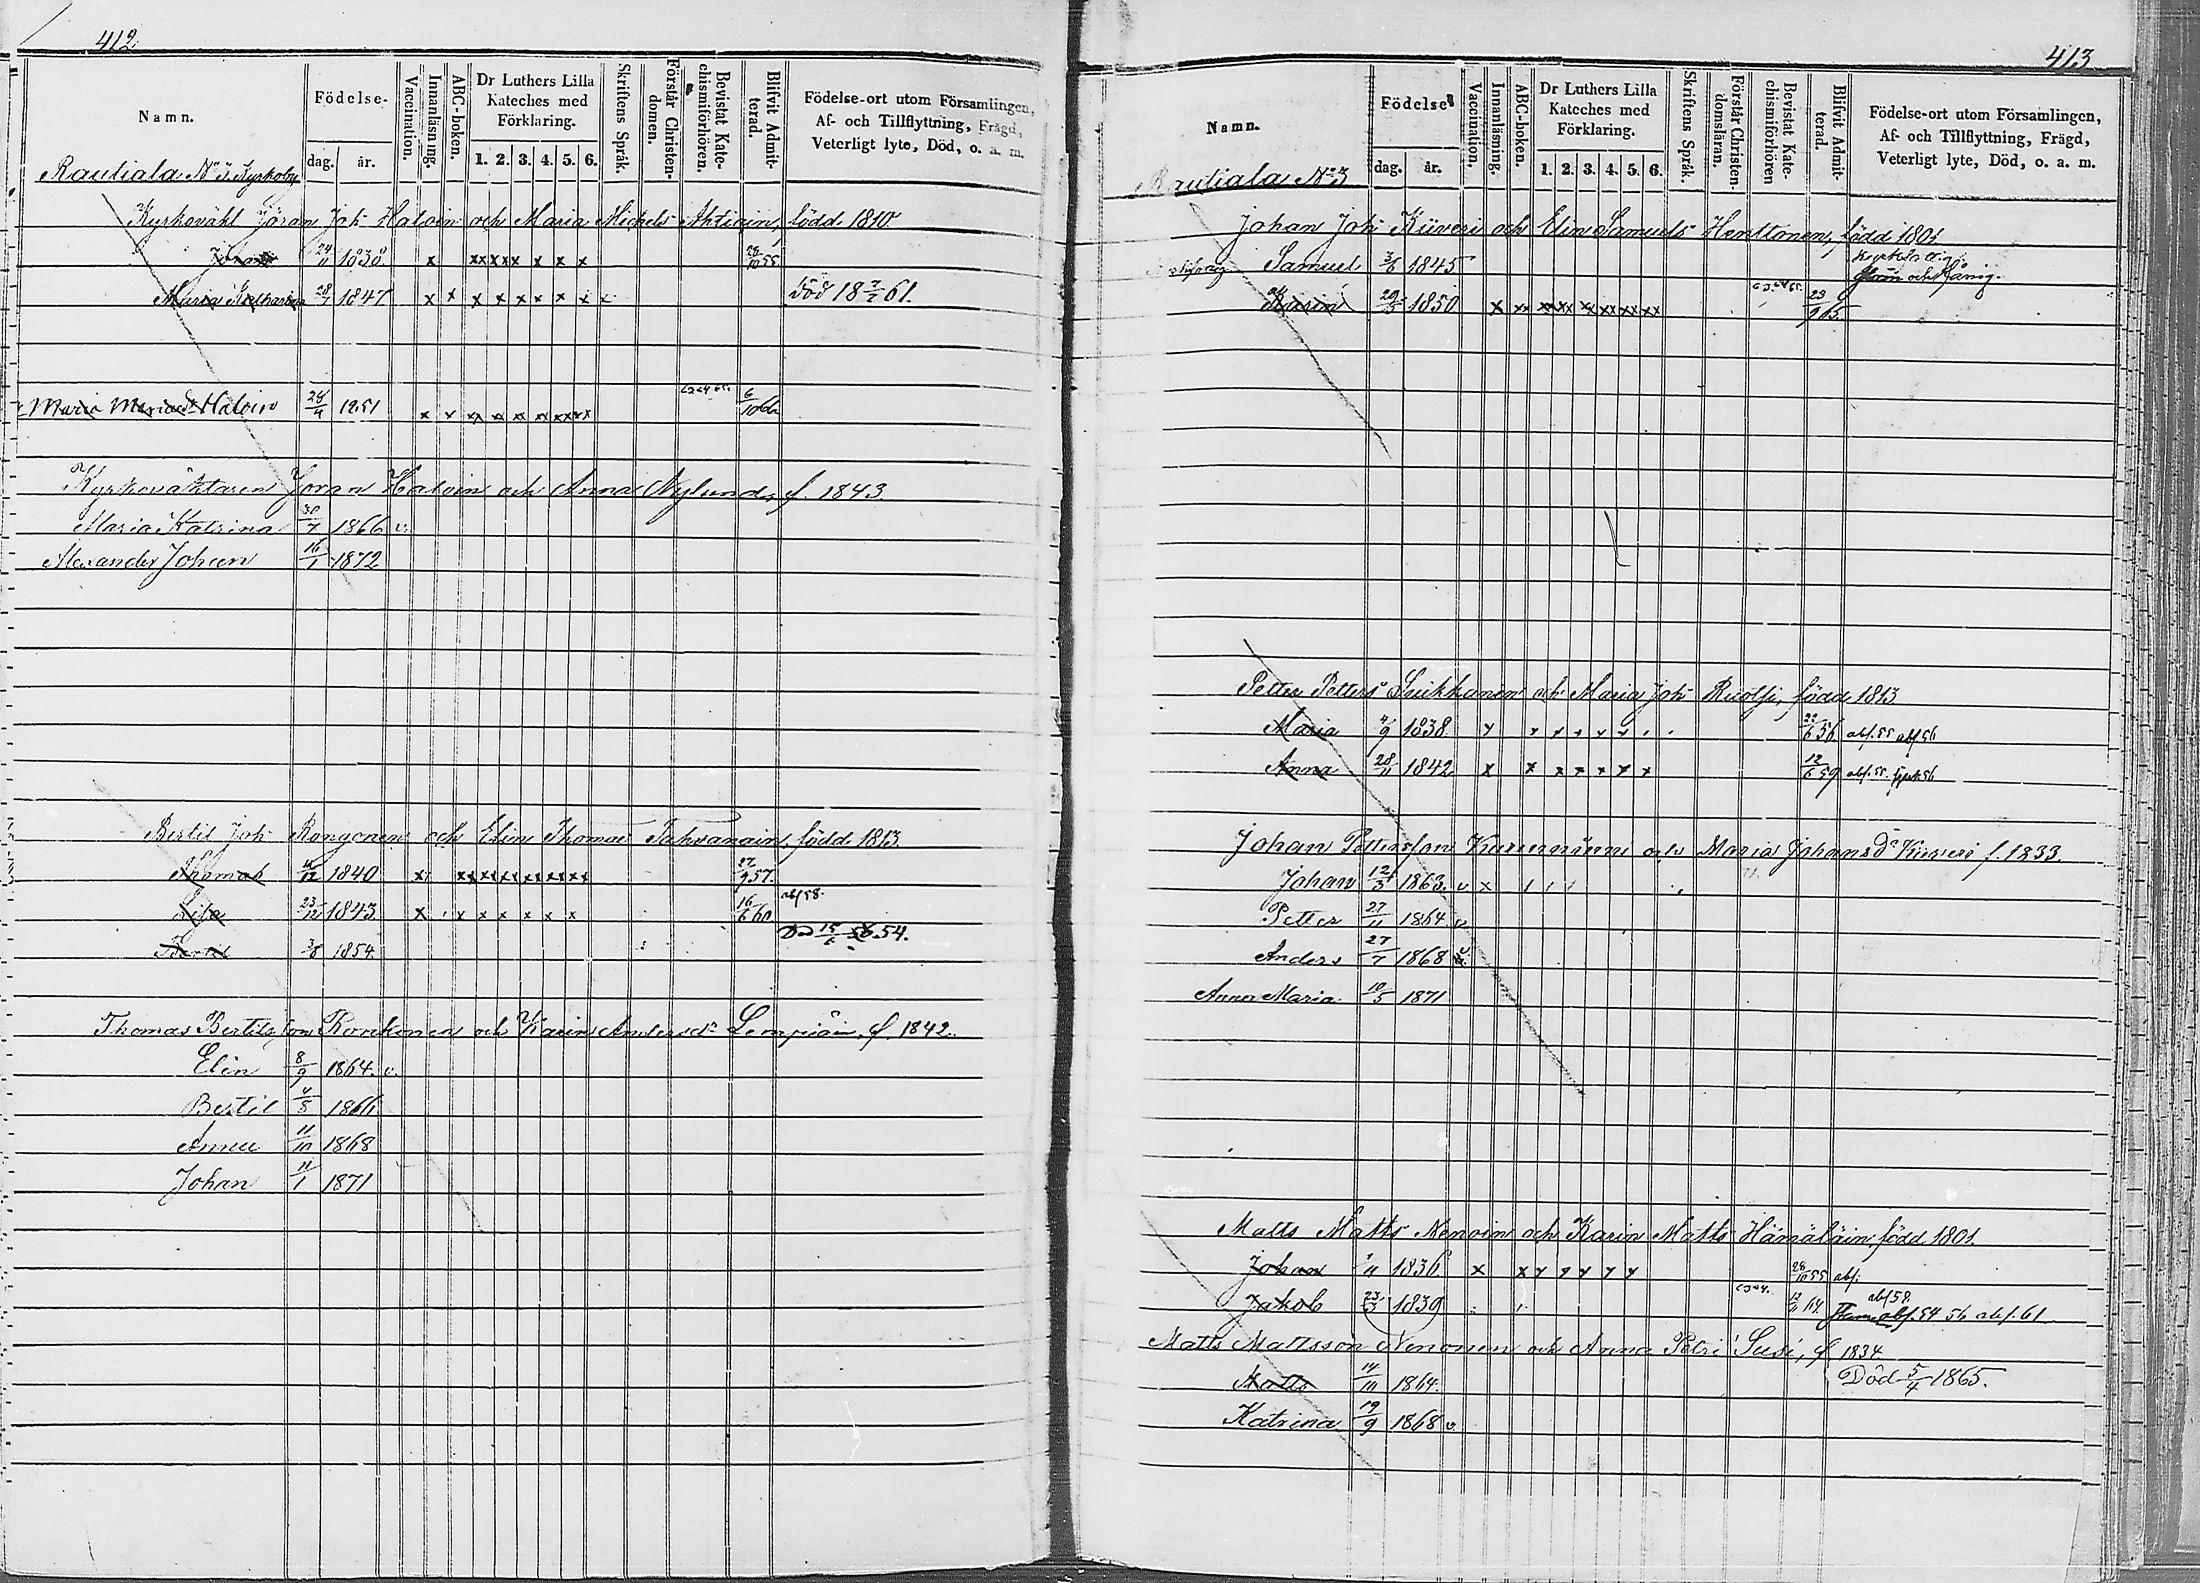 412
Namn.
Födelse-
dag. år.
Vaccination.
Innanläsning.
ABC-boken.
Dr Luthers Lilla Kateches med Förklaring.
1. 2. 3. 4. 5. 6.
Skriftens Språk.
Förstår Christen-domen.
Bevistat Kate-chismiförhören.
Blifvit Admit-terad.
Födelse-ort utom Församlingen, Af- och Tillflyttning, Frägd, Veterligt lyte, Död, o. a. m.
Rautiala Kyrkoby
Kyrkovakt Jöran Joh Haloin och Maria Michels Ahtiain, född 1810.
Jöran 24/11 1838 x xx xx x x x x 28/10 55
Maria Katharina 28/7 1847 x x x x x x x x död 18 7/7 61.
Maria Mariaed Haloin 28/4 1851 x x 6/10 66
Kyrkoväktaren Joran Haloin och Anna Nylund, f. 1843
Maria Katrina 30/7 1866 v.
Alexander Johan 16/1 1872
Bertil Joh Rongonen och Elin Thomas Tahvanain, född 1813.
Thomas 1840 x xx xx xx xx xx xx 27/9 57.
Lisa 23/12 1843 x x x x x x x 16/6 60 abs 58.
1854. Död 15/6 54.
Thomas Bertilsson Ronkonen och Karin Andersd. Lempiäin, f. 1842.
Elin 8/9 1864. v.
Bertil 4/8 1866
Anna 11/10 1868
Johan 11/1 1871
413
Namn.
Födelse
dag. år.
Vaccination.
Innanläsning.
ABC-boken.
Dr Luthers Lilla Kateches med Förklaring.
1. 2. 3. 4. 5. 6.
Skriftens Språk.
Förstår Christen-domsläran.
Bevistat Kate-chismiförhören
Blifvit Admit-terad.
Födelse-ort utom Församlingen, Af- och Tillflyttning, Frägd, Veterligt lyte, Död, o. a. m.
Rautiala No 3
Johan Joh Kiiveri och Elin Samuels Henttonen, född 1801
Samuel 3/6 1845
Karin 1850 x xx xx xx xx xx xx xx 23/9 65.
Petter Petters Suikkanen och Maria Joh Ruotsi, född 1813
Maria 4/9 1838. 22/6 56. abs. 55 abs 56
Anna 28/11 1842 x x x x x x x 12/6 59 abs. 55.
Johan Pettersson och Maria Johansd Kiiveri f. 1833.
Johan 12/3 1863. v x
Petter 27/11 1864. v
Anders 27/7 1868 v.
Anna Maria 10/5 1871
Matts Matts Nenoin och Karin Matts Hämäläin, född 1801.
Johan 1836. x x y y y y y 28/10 55 abs.
Jakob 23/3 1839 abs 58. abs. 54 56 abs. 61
Matts Mattsson Nenonen och Anna Petri Susi, f. 1834
Matts 14/10 1864. Död 5/4 1865.
Katrina 19/9 1868 v.